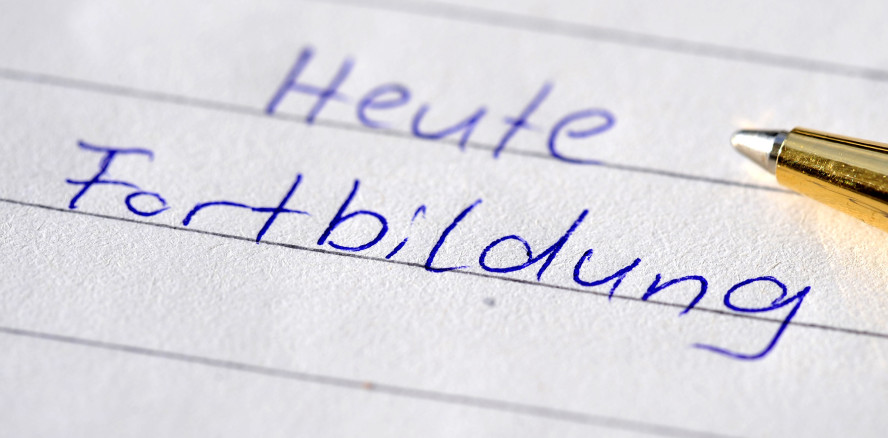 Heute
Fortbildung